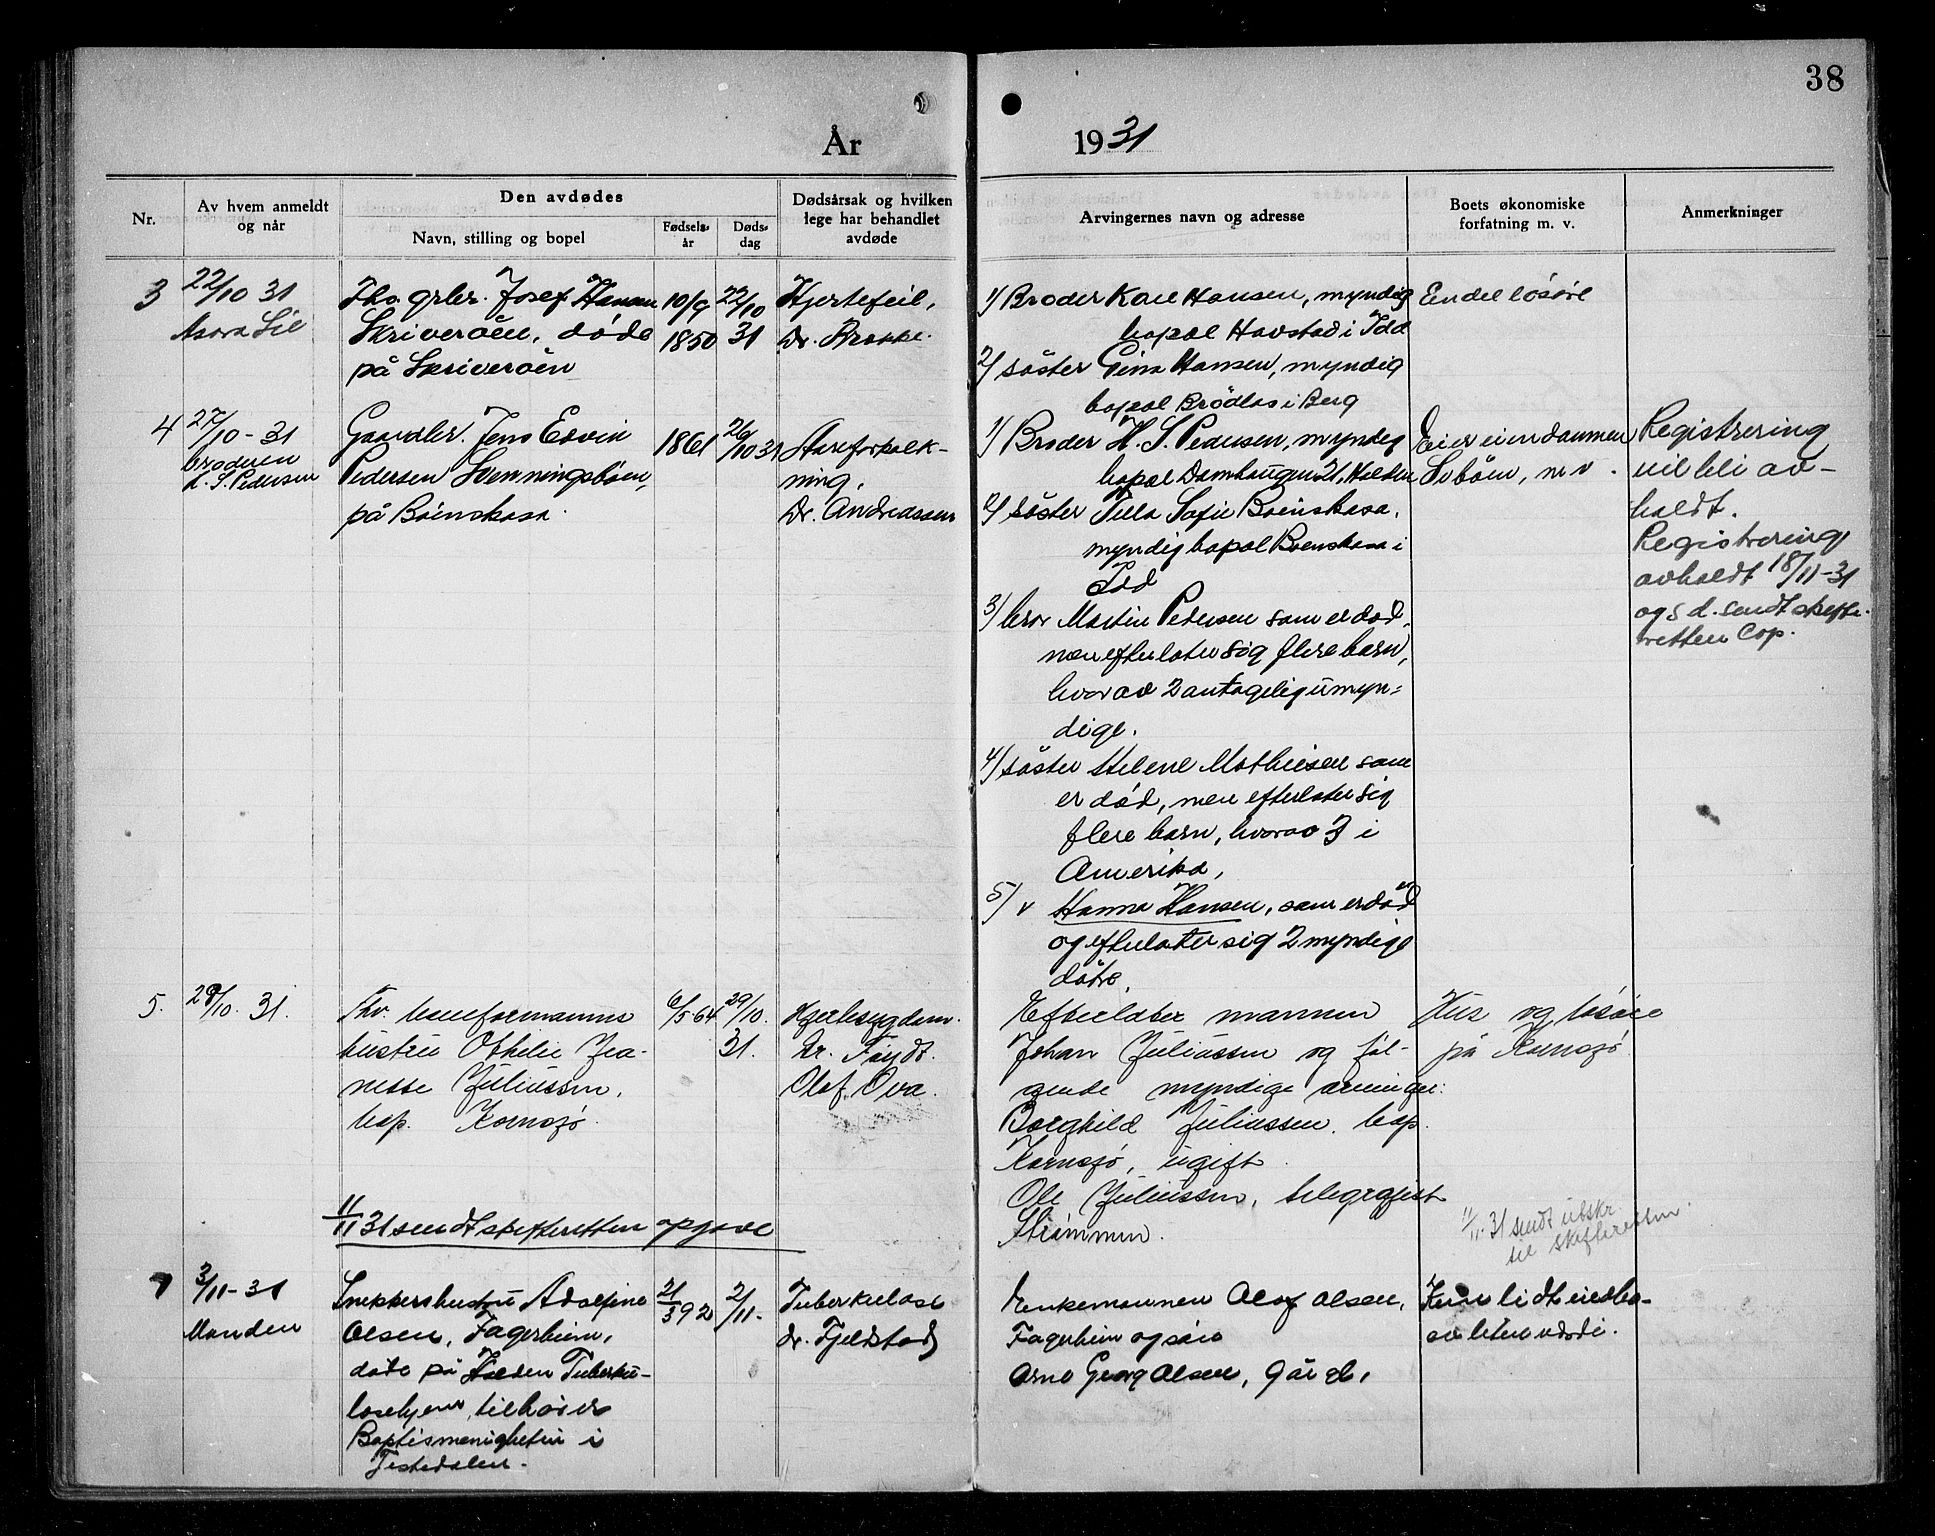 38
År 1931
Nr.
Av hvem anmeldt
og når
Den avdødes
Navn, stilling og bopel
Fødsels-
år
Døds-
dag
Dødsårsak og hvilken
lege har behandlet
avdøde
Arvingernes navn og adresse
Boets økonomiske
forfatning m. v.
Anmerkninger
3
22/10 31
Josef Hansen
Skriverøen, døde
på Skriverøen
10/9
1850
22/10
31
Hjertefeil,
Dr.
1/ Broder Karl Hansen, myndig
bopel Havstad i Idd
2/ søster Gina Hansen, myndig
bopel Brødløs i Berg
Endel løsøre
4
27/10 - 31
broderen
H. S. Pedersen
Gaardbr. Jens Edvin
Pedersen Svenningsbøen,
på Bøenskasa.
1861
26/10 31
Aareforkalk-
ning,
Dr. Andreassen
1/ Broder H. S. Pedersen, myndig
bopel Damhaugen 21, Halden
2/ søster Tilla Sofie Bøenskasa,
myndig bopel Bøenskasa i
Idd
3/ bror Martin Pedersen som er død,
men efterlater sig flere barn,
hvorav 2 antagelig umyn-
dige.
4/ søster Helene Mathiesen som
er død, men efterlater sig
flere barn, hvorav 3 i
Amerika,
5/ v Hanna Hansen, som er død
og efterlater sig 2 myndige
døtre,
Eier eiendommen
Sibøen, m v.
Registrering
vil bli av-
holdt.
Registrering
avholdt 18/11-31
og s. d. sendt skifte-
retten Cop.
5.
29/10. 31.
Fhv. baneformanns
hustru Othilie Jea-
nette Juliussen,
bop. Kornsjø.
6/5 64
29/10.
31.
Hjertesygdom.
Dr. Føyd.
Olof. Ova.
Efterlater mannen
Johan Juliussen og føl-
gende myndige arvinger:
Borghild Juliussen, bop.
Kornsjø, ugift
Ole Juliussen, telegrafist
Strømmen.
Hus og løsøre
på Kornsjø
11/11 31 sendt skifteretten opgave
11/11. 31 sendt utskr.
til skifteretten.
3/11-31
Manden
Snekkerhustru Adolfine
Olsen, Fagerheim,
døde på Halden Tuberku-
losehjem, tilhører
Baptismenigheten i
Tistedalen.
21/3 92
2/11-
Tuberkulose
dr. Fjeldstad
Enkemannen Olaf Olsen,
Fagerheim og søn
Arne Georg Olsen, 9 år gl.
Kun lidt eiendeler
av liten værdi.